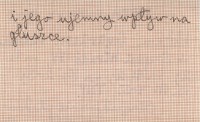 i jego ujemny wpływ na
głuszce.